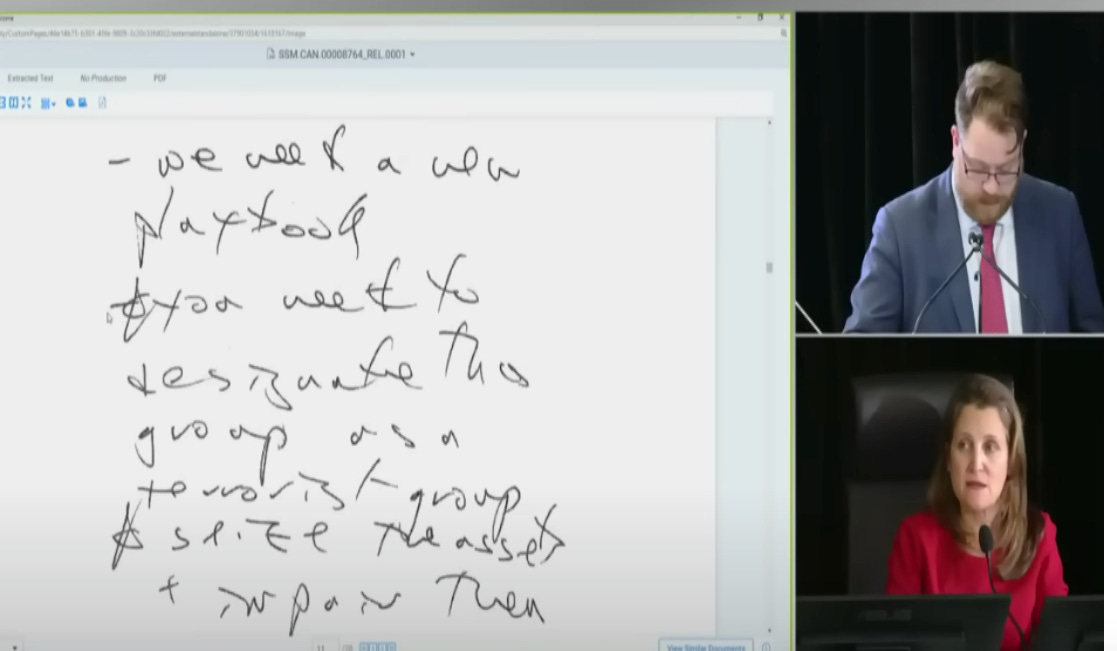 SSM.CAN.00008764_REL.0001
Extracted Text No Production PDF
- we need a new
Playbook
you need to
designate this
group as a
terrorist group
seize the assets
+ impair them
11
View Similar Documents